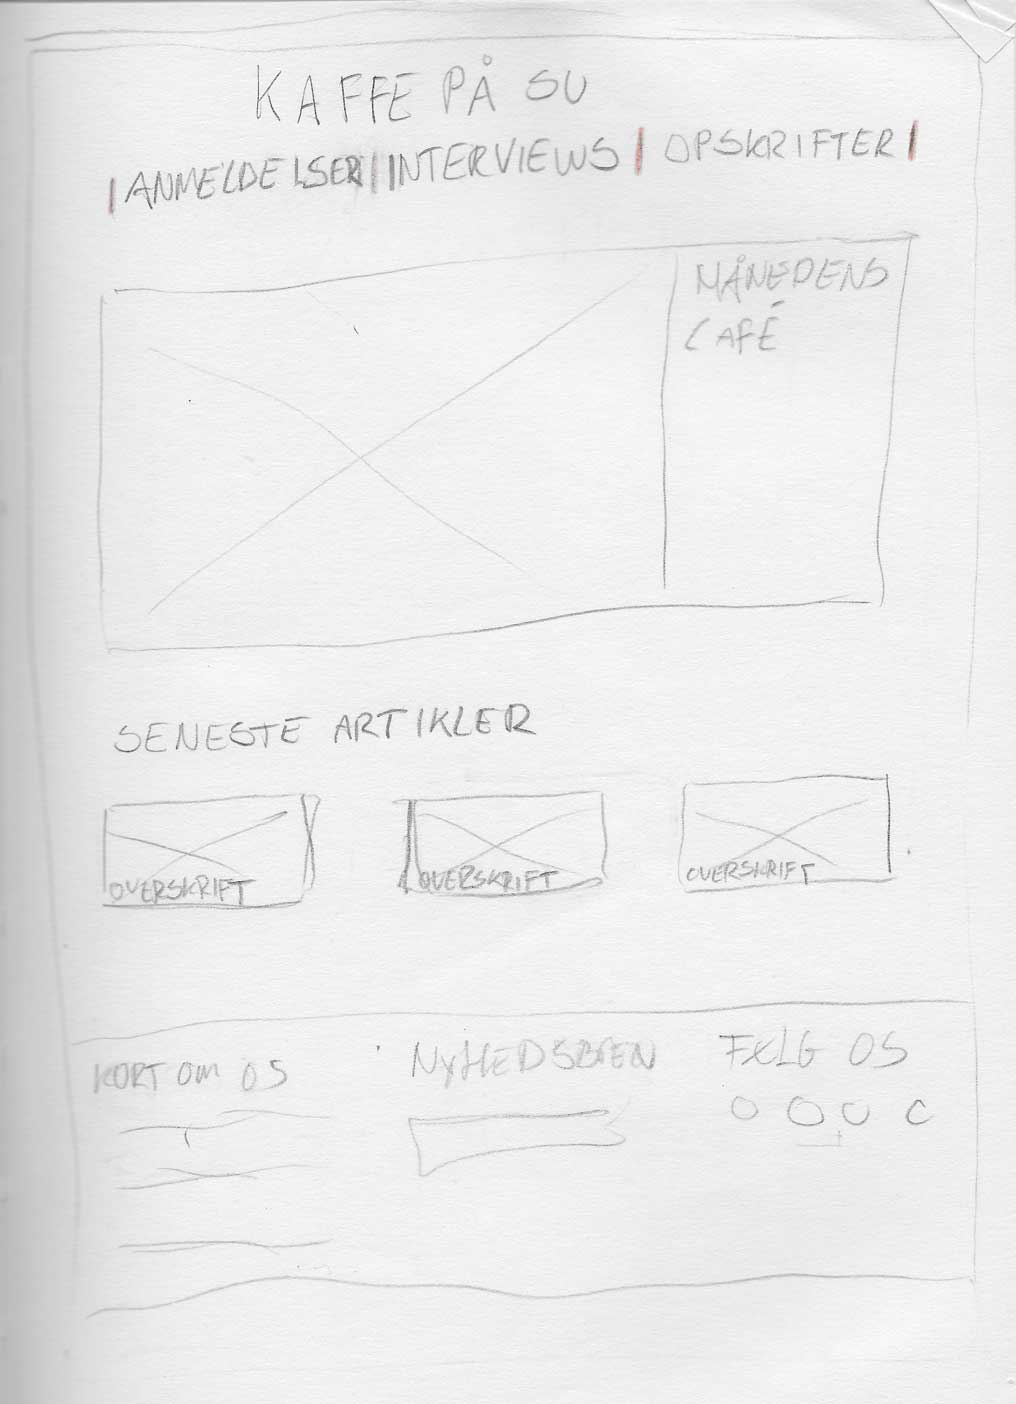 KAFFE PÅ SU
| ANMELDELSER | INTERVIEWS | OPSKRIFTER |
MÅNEDENS
CAFÉ
SENESTE ARTIKLER
OVERSKRIFT OVERSKRIFT OVERSKRIFT
KORT OM OS NYHEDSBREV FØLG OS